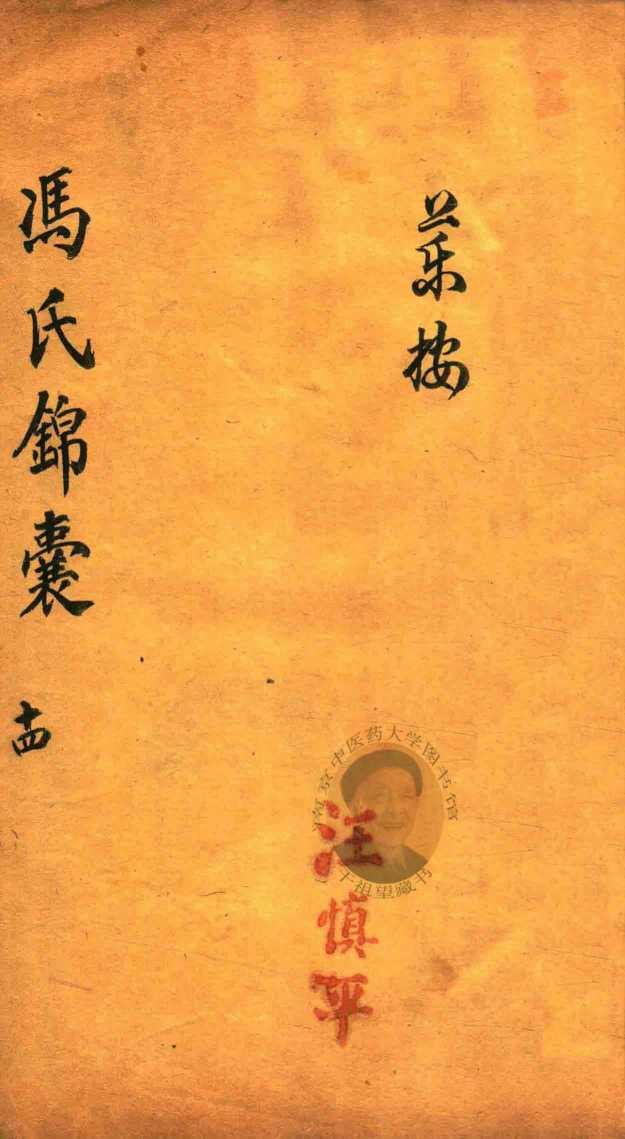 藥按
南京中医药大学图书馆
干祖望藏书
汪慎平
馮氏錦囊 十四